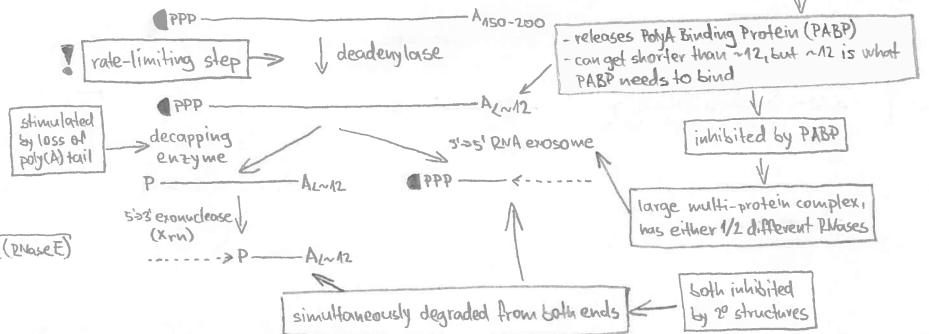 PPP A150-200
! rate-limiting step
deadenylase
- releases PolyA Binding Protein (PABP)
- can get shorter than ~12, but ~12 is what
PABP needs to bind
PPP A<~12
stimulated
by loss of
poly(A) tail
decapping
enzyme
3'→5' RNA exosome
inhibited by PABP
P A<~12
PPP
5'→3' exonuclease
(Xrn)
large multi-protein complex,
has either 1/2 different RNases
(RNase E)
P A<~12
simultaneously degraded from both ends
both inhibited
by 2° structures